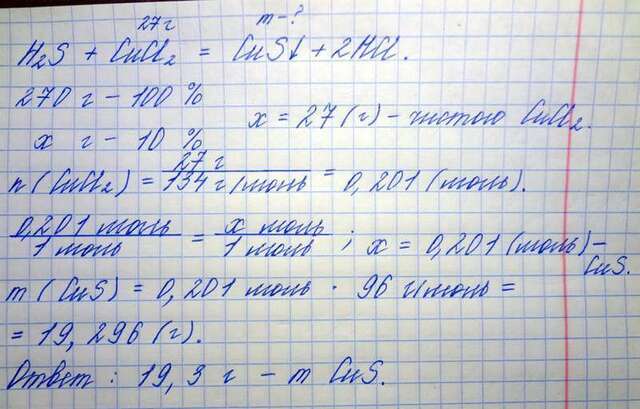 27 г m-?
H₂S + CuCl₂ = CuS↓ + 2HCl.
270 г - 100 %
x г - 10 % x = 27 (г) - чистого CuCl₂.
n (CuCl₂) = 27 г / 134 г/моль = 0,201 (моль).
0,201 моль / 1 моль = x моль / 1 моль ; x = 0,201 (моль) - CuS.
m (CuS) = 0,201 моль · 96 г/моль =
= 19,296 (г).
Ответ : 19,3 г - m CuS.